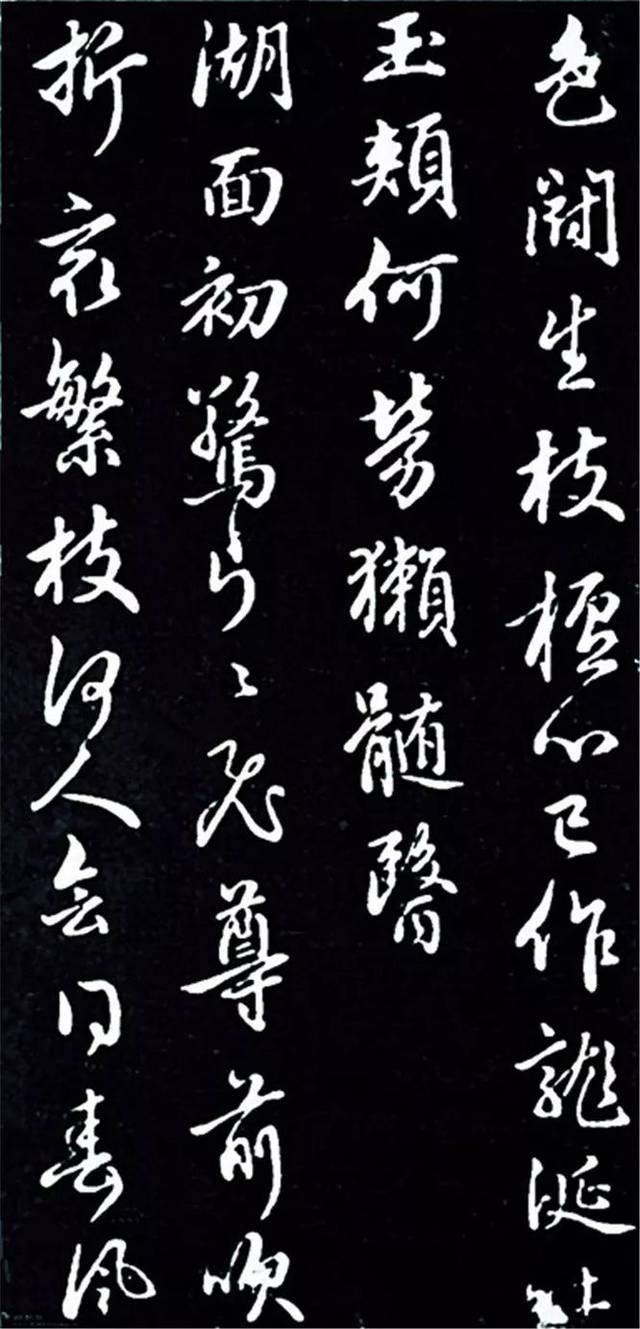 色鬪生枝檀心已作龍涎吐
玉頰何勞獺髓醫
湖面初驚片〻飛尊前吹
折最繁枝何人會同春風